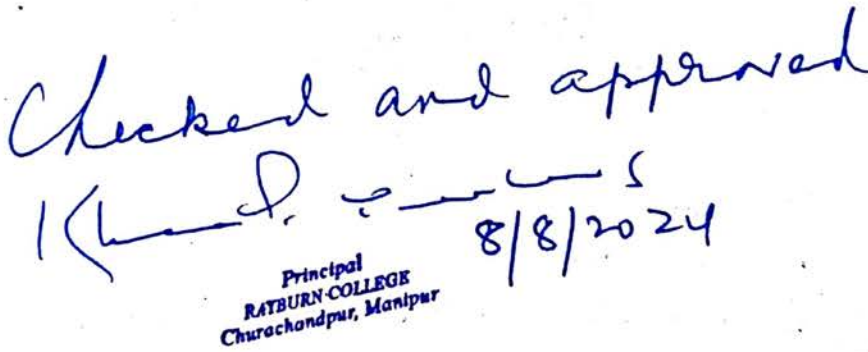 Checked and approved
8/8/2024
Principal
RAYBURN COLLEGE
Churachandpur, Manipur